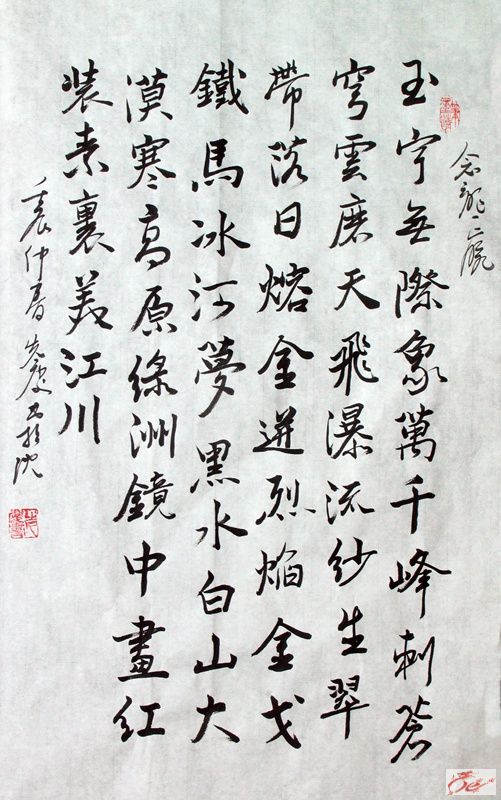 玉宇無際象萬千峰刺蒼
穹雲磨天飛瀑流紗生翠
帶落日熔金迸烈焰金戈
鐵馬冰河夢黑水白山大
漠寒高原綠洲鏡中畫紅
裝素裹美江川
壬辰仲春於沈